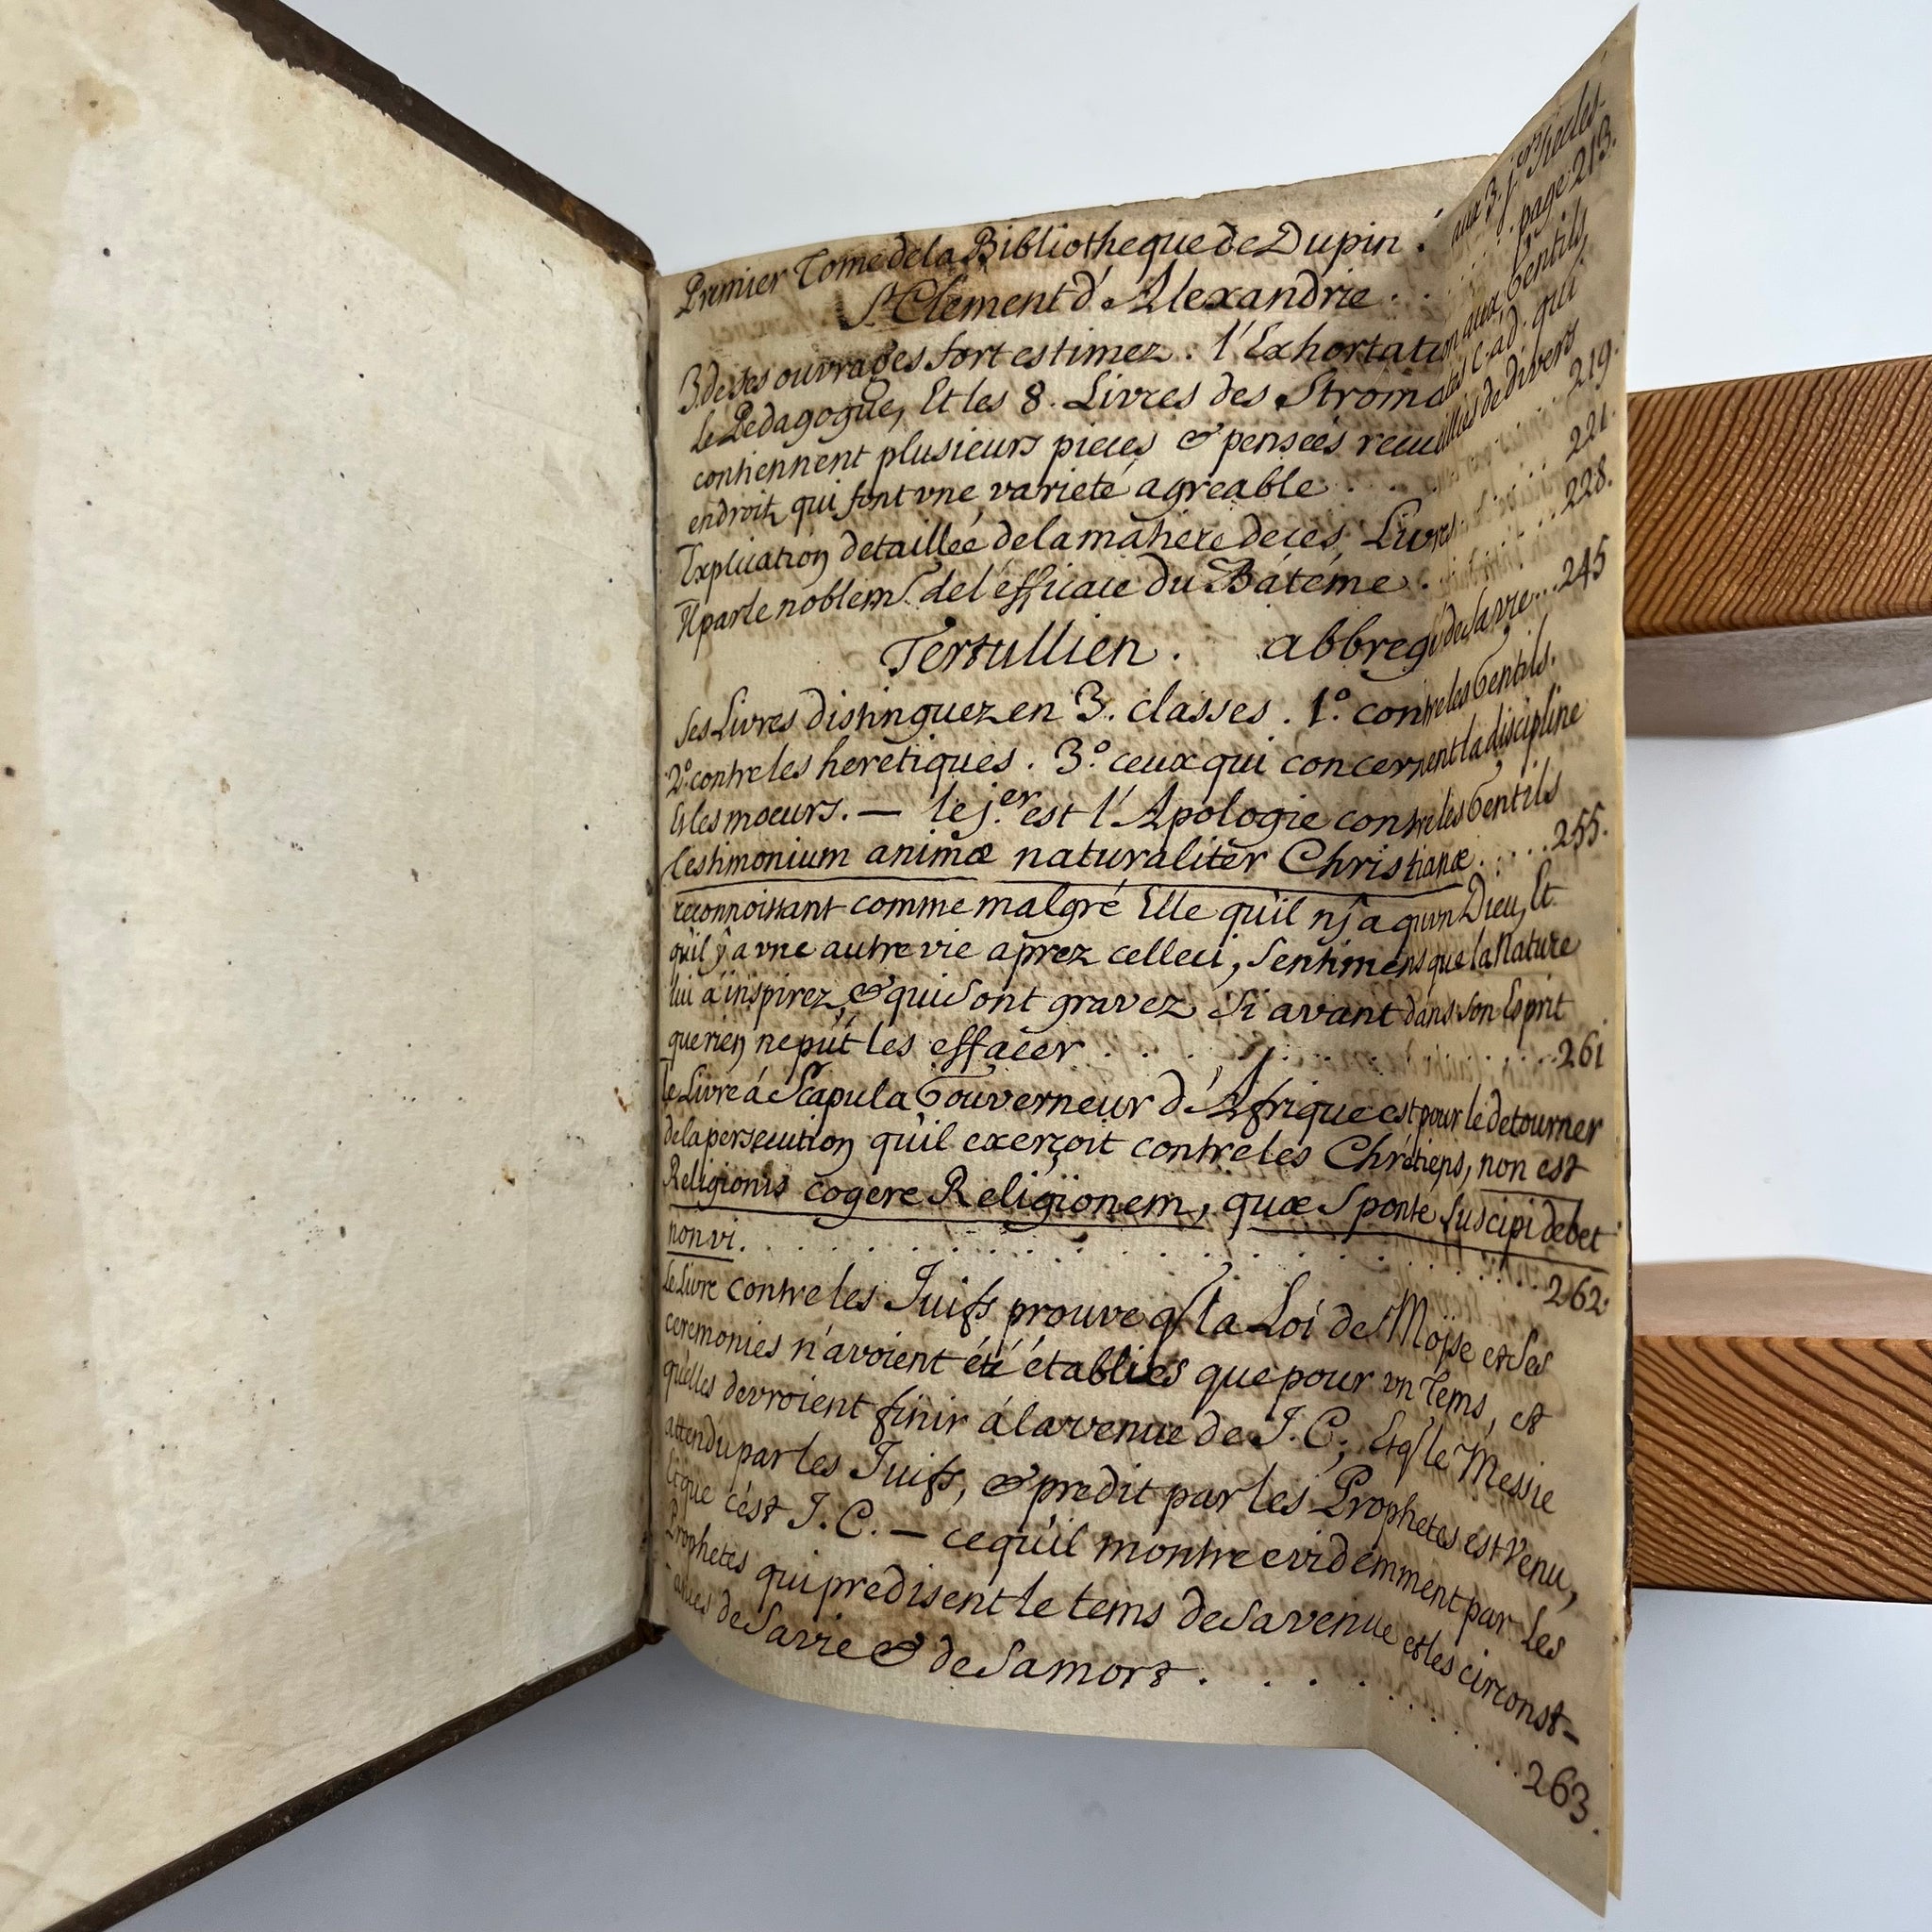 Premier Tome de la Bibliotheque de Dupin. aux 3. j.ers Siecles.
St Clement d'Alexandrie . . . . . page 213.
3. de ses ouvrages fort estimez. l'Exhortation aux Gentils,
le Pedagogue, Et les 8. Livres des Stromates C. ad. qui
contiennent plusieurs pieces & pensées recueillies de divers
endroits qui font vne varieté agreable . . . . . 219.
Explication detaillée de la matiere de ces Livres . . . 221.
Il parle noblemt. de l'efficace du Bátéme . . . . 228.
Tertullien. abbregé de sa vie . . . 245
ses Livres distinguez en 3. classes. 1º. contre les Gentils.
2º. contre les heretiques. 3.º ceux qui concernent la discipline
Et les moeurs. — le j.er est l'Apologie contre les Gentils
testimonium animæ naturaliter Christianæ . . . . . 255.
reconnoissant comme malgré Elle qu'il n'y a qu'vn Dieu, Et
qu'il y a vne autre vie aprez celle ci, Sentimens que la Nature
lui a inspirez, & qui Sont gravez Si avant dans Son Esprit
que rien ne pút les effacer . . . . . . . . . 261
le Livre á Scapula Gouverneur d'Afrique est pour le detourner
de la persecution qu'il exerçoit contre les Chrétiens, non est
Religionis cogere Religionem, quæ Sponte Suscipi debet
non vi. . . . . . . . . . . . . . . . . . 262.
Le Livre contre les Juifs prouve q la Loi de Moÿse et Ses
ceremonies n'avoient été établies que pour vn Tems, et
qu'elles devroient finir á la venue de J. C; Et q le Messie
attendu par les Juifs, & predit par les Prophetes est Venu,
Et que c'est J. C. — ce qu'il montre evidemment par Les
Prophetes qui predisent le tems de Sa venue et les circonst-
-ances de Sa vie & de Sa mort . . . . . . . . . 263.